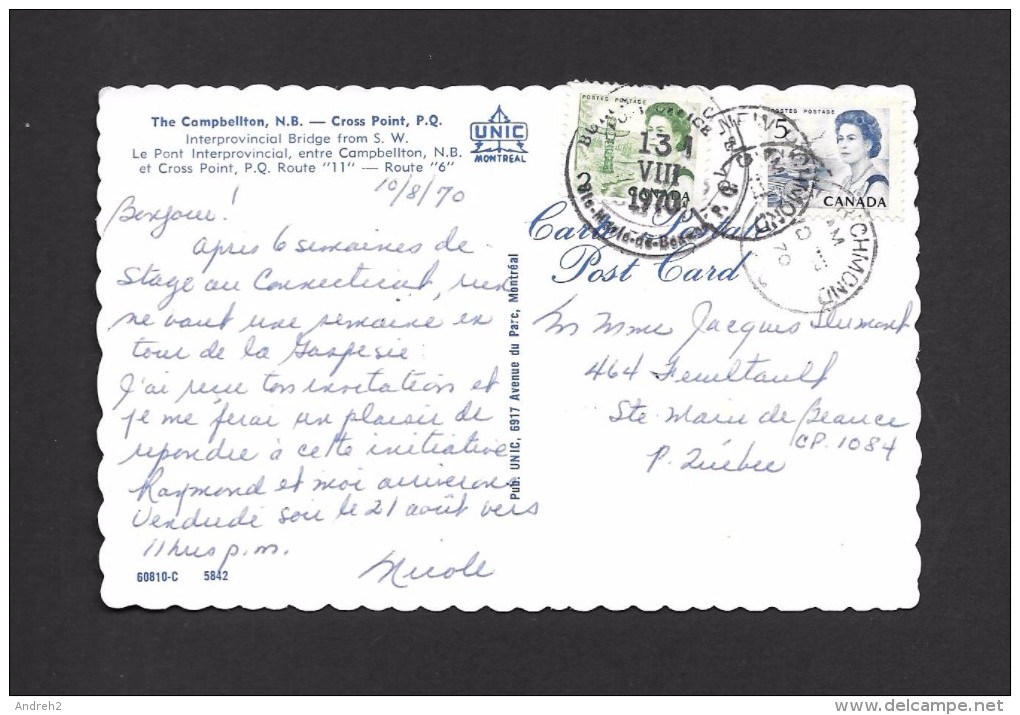 The Campbellton, N.B. — Cross Point, P.Q.
Interprovincial Bridge from S. W.
Le Pont Interprovincial, entre Campbellton, N.B.
et Cross Point, P.Q. Route "11" — Route "6"
UNIC
MONTREAL
10/8/70
Bonjour!
Après 6 semaines de
Stage au Connecticut, rien
ne vaut une semaine en
tour de la Gaspésie.
J'ai reçu ton invitation et
je me ferai un plaisir de
répondre à cette initiative
Raymond et moi arriverons
Vendredi soir le 21 août vers
11hrs p.m.
Nicole
60810-C 5842
Pub. UNIC, 6917 Avenue du Parc, Montréal
POSTES POSTAGE
CANADA
13
VIII
1970
POSTES POSTAGE
5
CANADA
NEW RICHMOND
AM
70
Carte Postale
Post Card
M Mme Jacques Dumont
464 Feuiltault
Ste Marie de Beauce
CP. 1084
P. Québec
Andreh2
delcampe.net